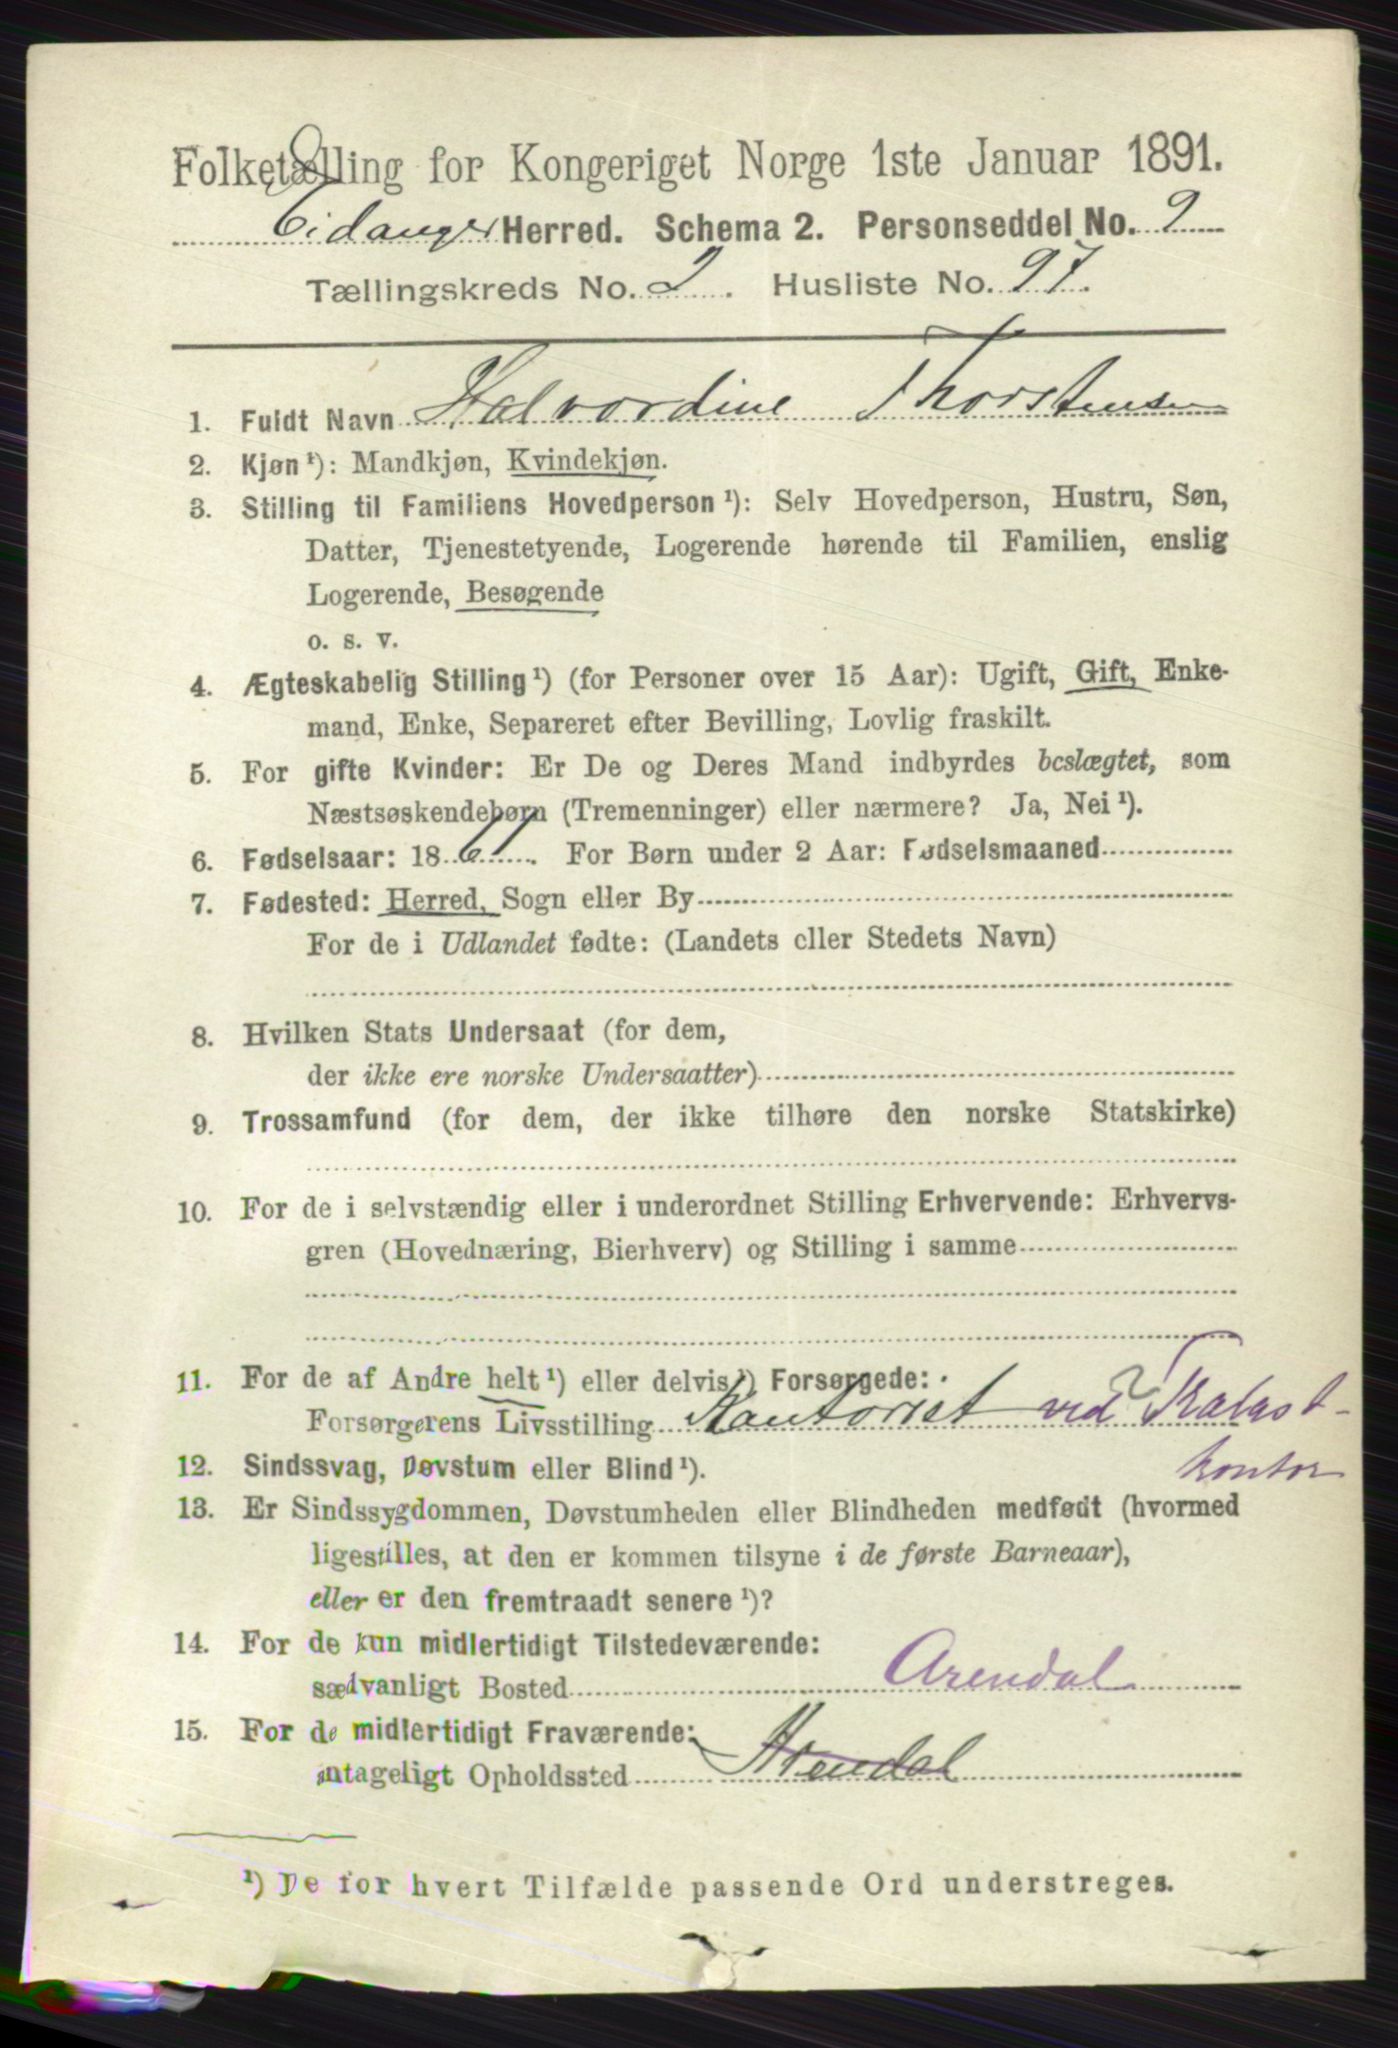 Folketælling for Kongeriget Norge 1ste Januar 1891.
Eidanger Herred. Schema 2. Personseddel No. 9
Tællingskreds No. 2. Husliste No. 97.
1. Fuldt Navn Halvordine Thorstensen
2. Kjøn ¹): Mandkjøn, Kvindekjøn.
3. Stilling til Familiens Hovedperson ¹): Selv Hovedperson, Hustru, Søn,
Datter, Tjenestetyende, Logerende hørende til Familien, enslig
Logerende, Besøgende
o. s. v.
4. Ægteskabelig Stilling ¹) (for Personer over 15 Aar): Ugift, Gift, Enke-
mand, Enke, Separeret efter Bevilling, Lovlig fraskilt.
5. For gifte Kvinder: Er De og Deres Mand indbyrdes beslægtet, som
Næstsøskendebørn (Tremenninger) eller nærmere? Ja, Nei ¹).
6. Fødselsaar: 1861. For Børn under 2 Aar: Fødselsmaaned
7. Fødested: Herred, Sogn eller By
For de i Udlandet fødte: (Landets eller Stedets Navn)
8. Hvilken Stats Undersaat (for dem,
der ikke ere norske Undersaatter)
9. Trossamfund (for dem, der ikke tilhøre den norske Statskirke)
10. For de i selvstændig eller i underordnet Stilling Erhvervende: Erhvervs-
gren (Hovednæring, Bierhverv) og Stilling i samme
11. For de af Andre helt ¹) eller delvis ¹) Forsørgede:
Forsørgerens Livsstilling Kontorist ved
kontor
12. Sindssvag, Døvstum eller Blind ¹).
13. Er Sindssygdommen, Døvstumheden eller Blindheden medfødt (hvormed
ligestilles, at den er kommen tilsyne i de første Barneaar),
eller er den fremtraadt senere ¹)?
14. For de kun midlertidigt Tilstedeværende:
sædvanligt Bosted Arendal
15. For de midlertidigt Fraværende:
antageligt Opholdssted Arendal
¹) De for hvert Tilfælde passende Ord understreges.